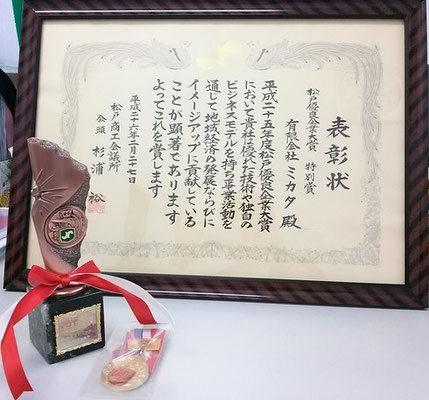 表彰状
松戸優良企業大賞 特別賞
有限会社 ミカタ 殿
平成二十五年度松戸優良企業大賞
において貴社は優れた技術や独自の
ビジネスモデルを持ち事業活動を
通じて地域経済の発展ならびに
イメージアップに貢献している
ことが顕著であります
よってこれを賞します
平成二十六年二月二十七日
松戸商工会議所
会頭 杉浦 裕